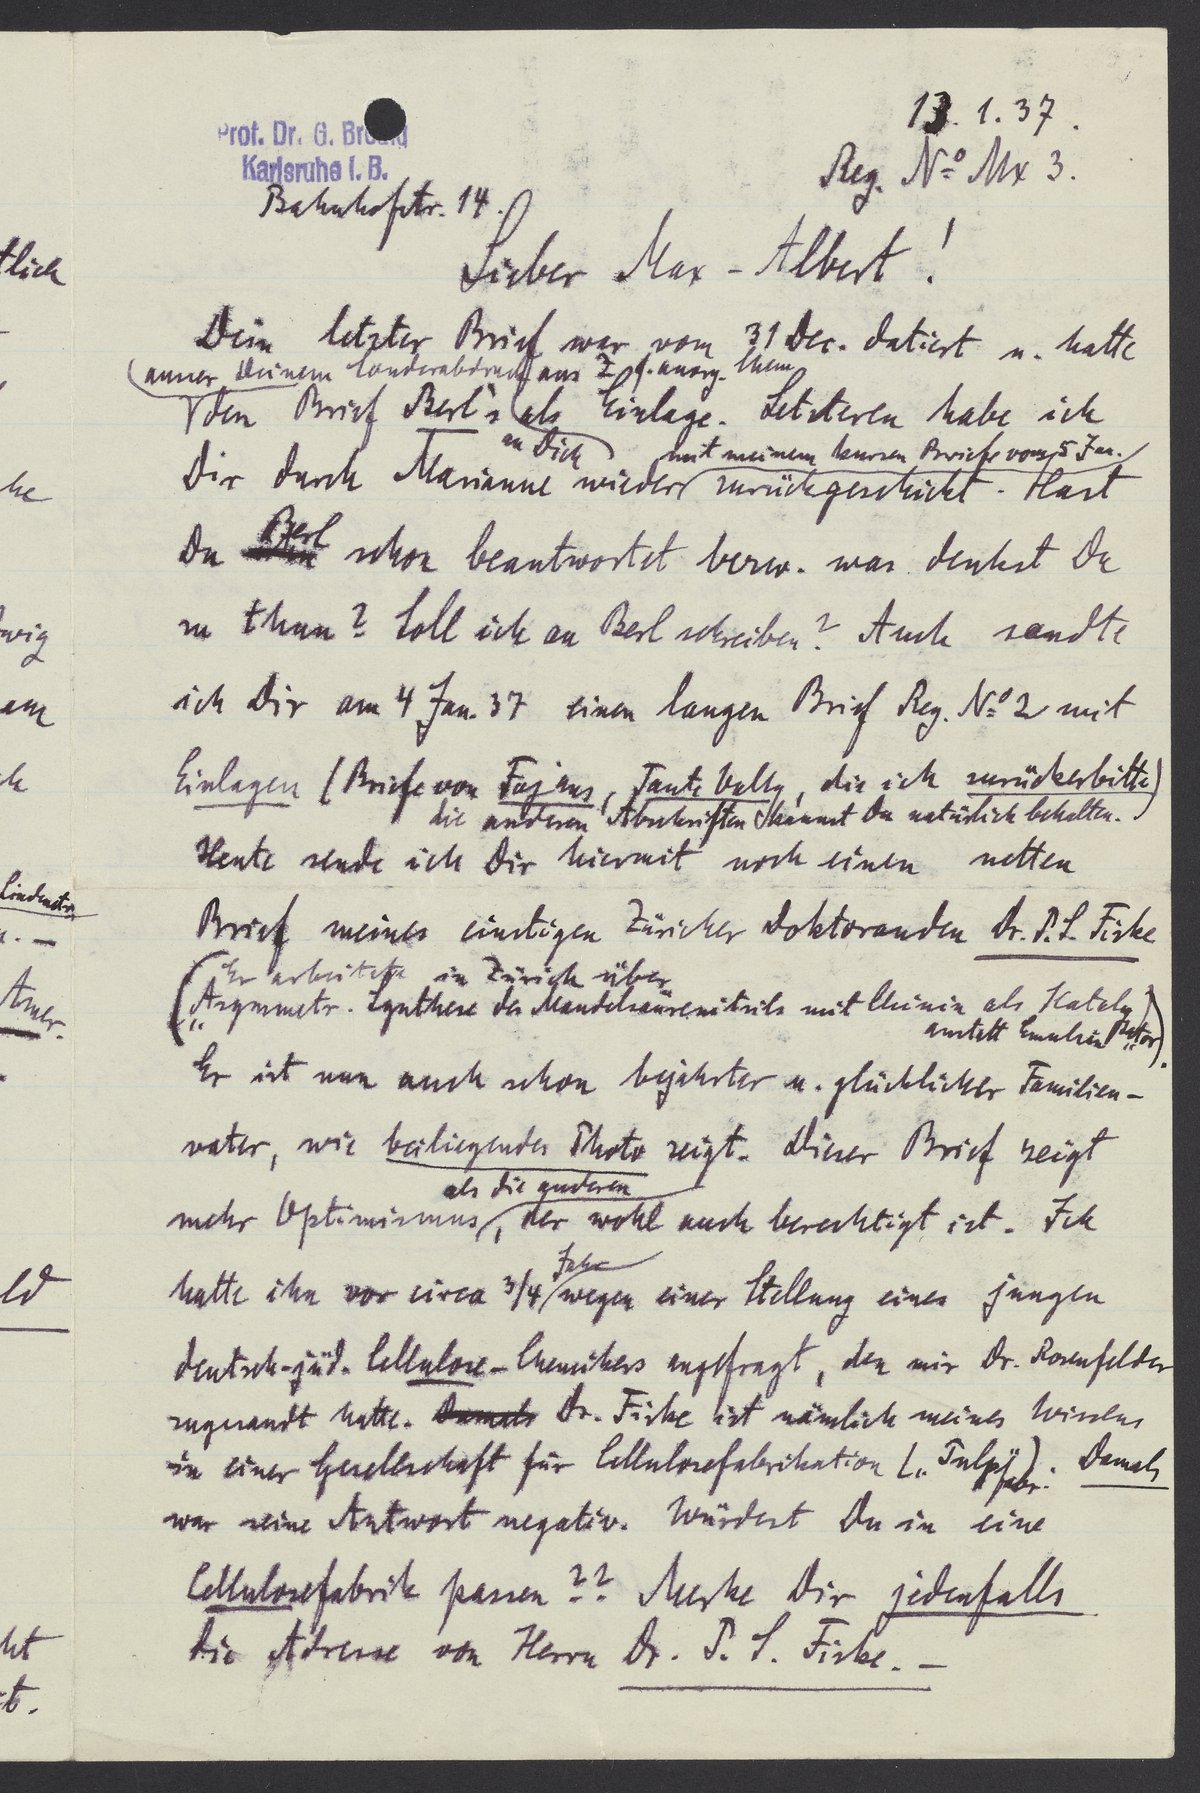 Prof. Dr. G. Bredig
Karlsruhe i. B.
Bahnhofstr. 14.
13. 1. 37.
Reg. No Mx 3.
Lieber Max-Albert!
Dein letzter Brief war vom 31 Dec. datiert u. hatte
(ausser Deinem Sonderabdruck aus Z. f. anorg. Chem.
den Brief Berl's an Dich als Einlage. Letzteren habe ich
Dir durch Marianne wieder mit meinem kurzen Briefe vom 5 Jan. zurückgeschickt. Hast
Du Berl schon beantwortet bezw. was denkst Du
zu thun? Soll ich an Berl schreiben? Auch sandte
ich Dir am 4 Jan. 37 einen langen Brief Reg. No 2 mit
Einlagen (Briefe von Fajans, Tante Vally, die ich zurückerbitte)
die anderen Abschriften kannst Du natürlich behalten.
Heute sende ich Dir hiermit noch einen netten
Brief meines einstigen Züricher Doktoranden Dr. P. S. Fiske
(Er arbeitete in Zürich über
„Asymmetr. Synthese des Mandelsäurenitrils mit Chinin als Katalysator
anstatt Emulsin“).
Er ist nun auch schon bejahrter u. glücklicher Familien-
vater, wie beiliegendes Photo zeigt. Dieser Brief zeigt
mehr Optimismus als die anderen, der wohl auch berechtigt ist. Ich
hatte ihn vor circa 3/4 Jahr wegen einer Stellung eines jungen
deutsch-jüd. Cellulose-Chemikers angefragt, den mir Dr. Rosenfelder
zugesandt hatte. Damals Dr. Fiske ist nämlich meines Wissens
in einer Gesellschaft für Cellulosefabrikation („Pulp“fabr.). Damals
war seine Antwort negativ. Würdest Du in eine
Cellulosefabrik passen?? Merke Dir jedenfalls
die Adresse von Herrn Dr. P. S. Fiske. —